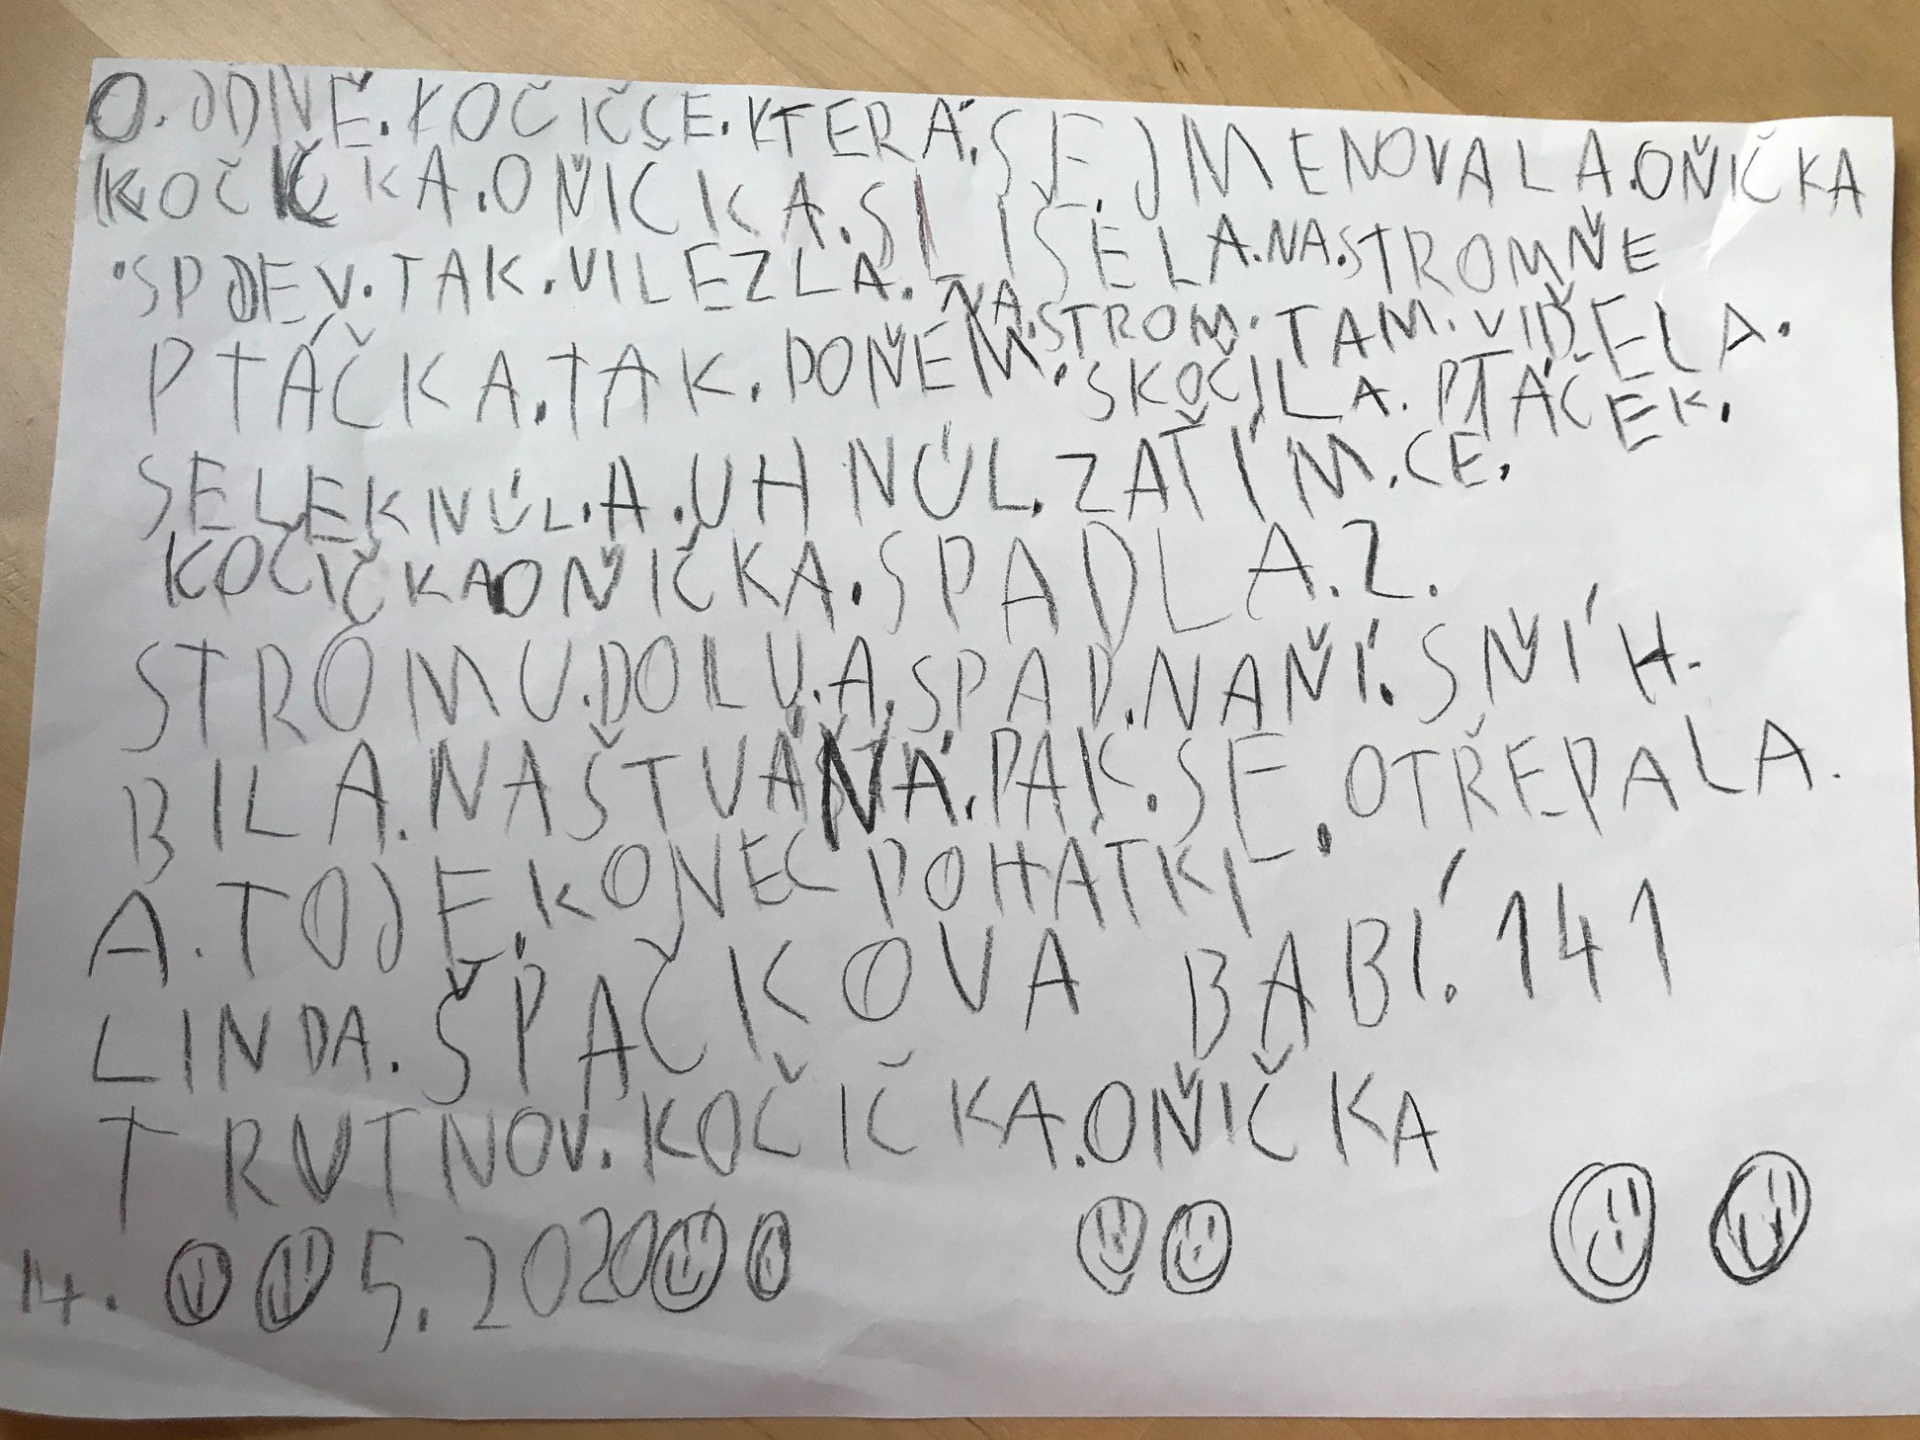 O. JDNĚ. KOČIČCE. KTERÁ. SE. JMENOVALA. OŇIČKA
KOČIČKA. OŇIČKA. SI IŠELA. NA. STROMŇE
. SPJEV. TAK. VILEZLA. NA. STROM. TAM. VIĎELA.
PTÁČKA. TAK. PONĚM. SKOČILA. PTÁČEK.
SELEKNÚL. A. UHNÚL. ZAŤÍM. CE.
KOČIČKAOŇIČKA. SPADLA. Z.
STROMU. DOLU. A. SPAD. NAŇÍ. SŇÍH.
BILA. NAŠTVANÁ. PAK. SE. OTŘEPALA.
A. TOJE. KONEC POHÁTKI
LINDA. ŠPAČKOVA BABÍ. 141
TRUTNOV. KOČIČKA. OŇIČKA
14. 5. 2020